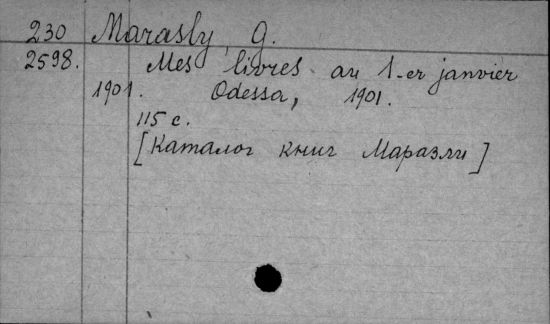 230 Marasly, G.
2598. Mes livres au 1-er janvier
1901. Odessa, 1901.
115 с.
[Каталог книг Маразли]